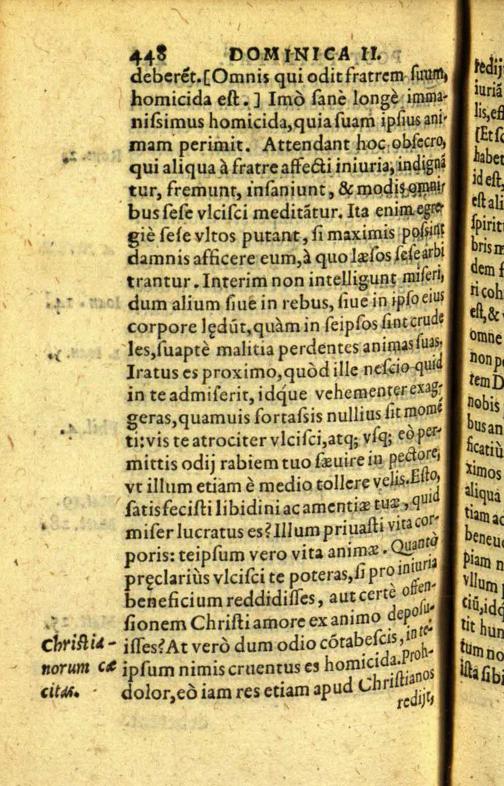 448 DOMINICA II.
deberēt. [Omnis qui odit fratrem suum,
homicida est.] Imò sanè longè imma-
nissimus homicida, quia suam ipsius ani-
mam perimit. Attendant hoc obsecro,
qui aliqua à fratre affecti iniuria, indignā
tur, fremunt, insaniunt, & modis omni-
bus sese vlcisci meditātur. Ita enim egre-
giè sese vltos putant, si maximis possint
damnis afficere eum, à quo læsos sese arbi
trantur. Interim non intelligunt miseri,
dum alium siue in rebus, siue in ipso eius
corpore lędūt, quàm in seipsos sint crude
les, suaptè malitia perdentes animas suas.
Iratus es proximo, quòd ille nescio quid
in te admiserit, idq́ue vehementer exag-
geras, quamuis fortassis nullius sit momē
ti: vis te atrociter vlcisci, atq; vsq; eò per-
mittis odij rabiem tuo sæuire in pectore,
vt illum etiam è medio tollere velis. Esto,
satisfecisti libidini ac amentiæ tuæ, quid
miser lucratus es? Illum priuasti vita cor-
poris: teipsum vero vita animæ. Quantò
pręclariùs vlcisci te poteras, si pro iniuria
beneficium reddidisses, aut certè offen-
sionem Christi amore ex animo deposu-
isses? At verò dum odio cōtabescis, in te-
ipsum nimis cruentus es homicida. Proh
dolor, eò iam res etiam apud Christianos
redijt,
Christia-
norum cæ
citas.
redij
iuriā
lis, est
[Et sc
habet
id est,
est ali
spirit
bris m
dem f
ri coh
est, &
omne
non p
tem D
nobis
bus an
ficatiù
ximos
aliqua
tiam ac
beneuo
piam n
vllum p
ciū, idq
tit hum
tum no
ista sibi